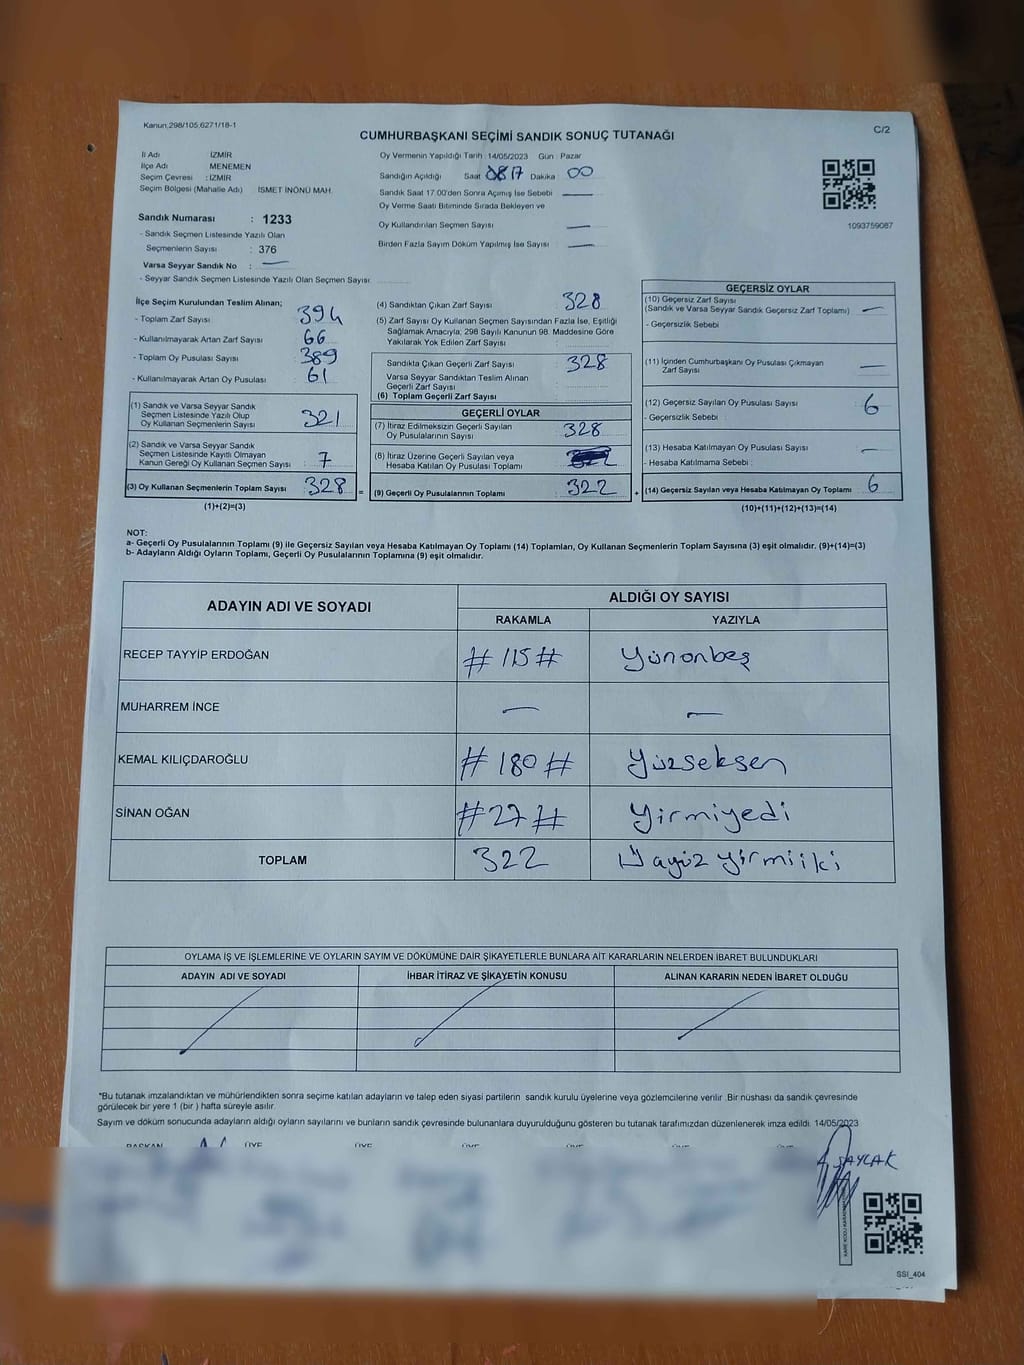 Kanun,298/105;6271/18-1
CUMHURBAŞKANI SEÇİMİ SANDIK SONUÇ TUTANAĞI
C/2
İl Adı İZMİR
İlçe Adı MENEMEN
Seçim Çevresi : İZMİR
Seçim Bölgesi (Mahalle Adı) İSMET İNÖNÜ MAH.
Oy Vermenin Yapıldığı Tarih :14/05/2023 Gün : Pazar
Sandığın Açıldığı Saat 0817 Dakika 00
Sandık Saat 17.00'den Sonra Açımış İse Sebebi —
Oy Verme Saati Bitiminde Sırada Bekleyen ve
Oy Kullandırılan Seçmen Sayısı —
Birden Fazla Sayım Döküm Yapılmış İse Sayısı —
1093759087
Sandık Numarası : 1233
- Sandık Seçmen Listesinde Yazılı Olan
Seçmenlerin Sayısı : 376
Varsa Seyyar Sandık No : —
- Seyyar Sandık Seçmen Listesinde Yazılı Olan Seçmen Sayısı:
İlçe Seçim Kurulundan Teslim Alınan;
- Toplam Zarf Sayısı 394
- Kullanılmayarak Artan Zarf Sayısı 66
- Toplam Oy Pusulası Sayısı 389
- Kullanılmayarak Artan Oy Pusulası 61
(1) Sandık ve Varsa Seyyar Sandık
Seçmen Listesinde Yazılı Olup
Oy Kullanan Seçmenlerin Sayısı 321
(2) Sandık ve Varsa Seyyar Sandık
Seçmen Listesinde Kayıtlı Olmayan
Kanun Gereği Oy Kullanan Seçmen Sayısı 7
(3) Oy Kullanan Seçmenlerin Toplam Sayısı 328 =
(1)+(2)=(3)
(4) Sandıktan Çıkan Zarf Sayısı 328
(5) Zarf Sayısı Oy Kullanan Seçmen Sayısından Fazla İse, Eşitliği
Sağlamak Amacıyla; 298 Sayılı Kanunun 98. Maddesine Göre
Yakılarak Yok Edilen Zarf Sayısı
Sandıkta Çıkan Geçerli Zarf Sayısı 328
Varsa Seyyar Sandıktan Teslim Alınan
Geçerli Zarf Sayısı
(6) Toplam Geçerli Zarf Sayısı
GEÇERLİ OYLAR
(7) İtiraz Edilmeksizin Geçerli Sayılan
Oy Pusulalarının Sayısı 328
(8) İtiraz Üzerine Geçerli Sayılan veya
Hesaba Katılan Oy Pusulası Toplamı
(9) Geçerli Oy Pusulalarının Toplamı 322 +
GEÇERSİZ OYLAR
(10) Geçersiz Zarf Sayısı
(Sandık ve Varsa Seyyar Sandık Geçersiz Zarf Toplamı) —
- Geçersizlik Sebebi
(11) İçinden Cumhurbaşkanı Oy Pusulası Çıkmayan
Zarf Sayısı —
(12) Geçersiz Sayılan Oy Pusulası Sayısı 6
- Geçersizlik Sebebi
(13) Hesaba Katılmayan Oy Pusulası Sayısı —
- Hesaba Katılmama Sebebi :
(14) Geçersiz Sayılan veya Hesaba Katılmayan Oy Toplamı 6
(10)+(11)+(12)+(13)=(14)
NOT:
a- Geçerli Oy Pusulalarının Toplamı (9) ile Geçersiz Sayılan veya Hesaba Katılmayan Oy Toplamı (14) Toplamları, Oy Kullanan Seçmenlerin Toplam Sayısına (3) eşit olmalıdır. (9)+(14)=(3)
b- Adayların Aldığı Oyların Toplamı, Geçerli Oy Pusulalarının Toplamına (9) eşit olmalıdır.
ADAYIN ADI VE SOYADI ALDIĞI OY SAYISI
RAKAMLA YAZIYLA
RECEP TAYYİP ERDOĞAN # 115 # Yünonbeş
MUHARREM İNCE — —
KEMAL KILIÇDAROĞLU # 180 # Yüzseksen
SİNAN OĞAN # 27 # Yirmiyedi
TOPLAM 322 yirmiiki
OYLAMA İŞ VE İŞLEMLERİNE VE OYLARIN SAYIM VE DÖKÜMÜNE DAİR ŞİKAYETLERLE BUNLARA AİT KARARLARIN NELERDEN İBARET BULUNDUKLARI
ADAYIN ADI VE SOYADI İHBAR İTİRAZ VE ŞİKAYETİN KONUSU ALINAN KARARIN NEDEN İBARET OLDUĞU
*Bu tutanak imzalandıktan ve mühürlendikten sonra seçime katılan adayların ve talep eden siyasi partilerin sandık kurulu üyelerine veya gözlemcilerine verilir .Bir nüshası da sandık çevresinde
görülecek bir yere 1 (bir ) hafta süreyle asılır.
Sayım ve döküm sonucunda adayların aldığı oyların sayılarını ve bunların sandık çevresinde bulunanlara duyurulduğunu gösteren bu tutanak tarafımızdan düzenlenerek imza edildi. 14/05/2023
BAŞKAN ÜYE ÜYE ÜYE ÜYE ÜYE
SAYLAK
SSİ_404